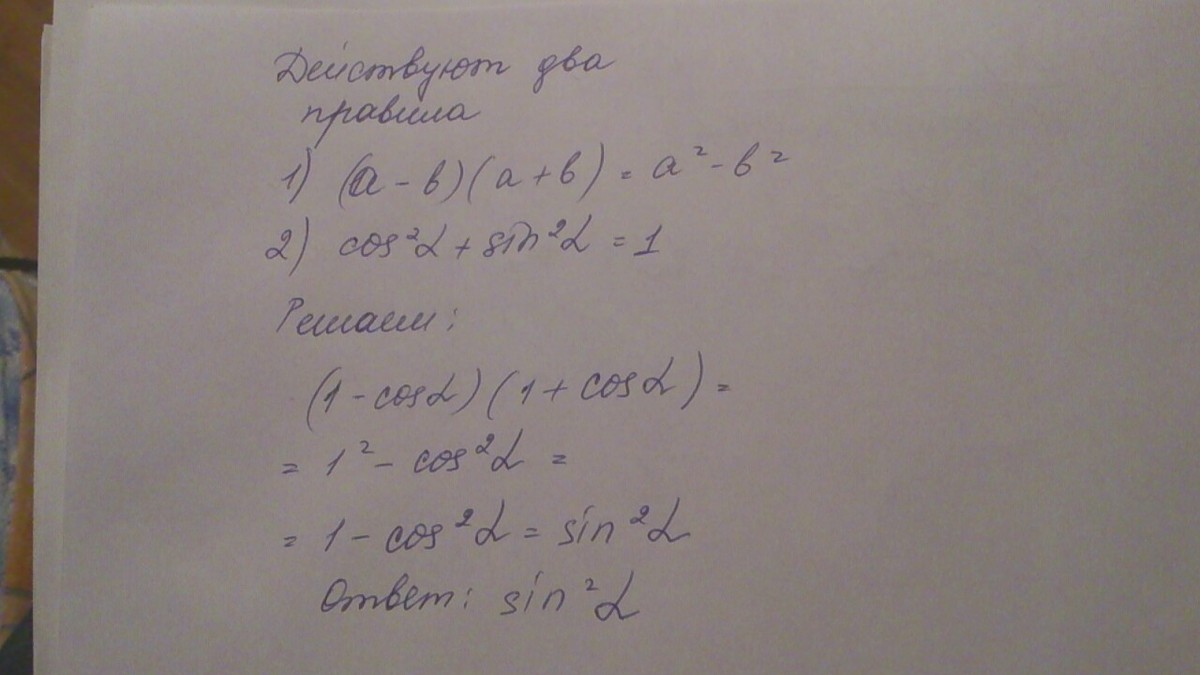 Действуют два
правила
1) (a - в)(a + в) = a² - в²
2) cos²α + sin²α = 1
Решаем:
(1 - cosα)(1 + cosα) =
= 1² - cos²α =
= 1 - cos²α = sin²α
Ответ: sin²α